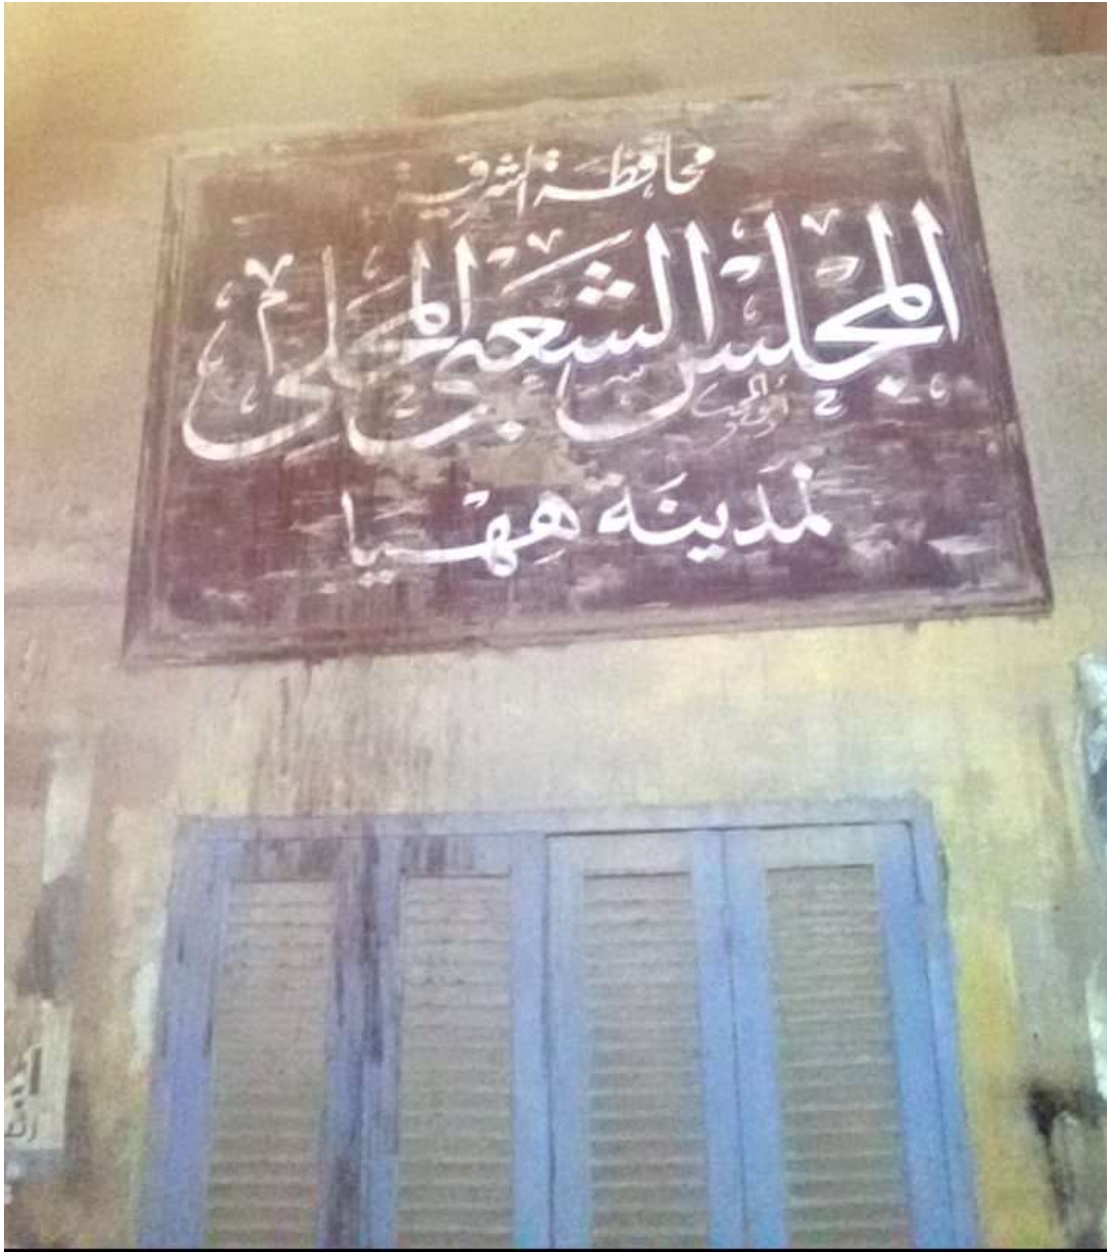 محافظة الشرقية
المجلس الشعبى المحلى
لمدينة ههيا